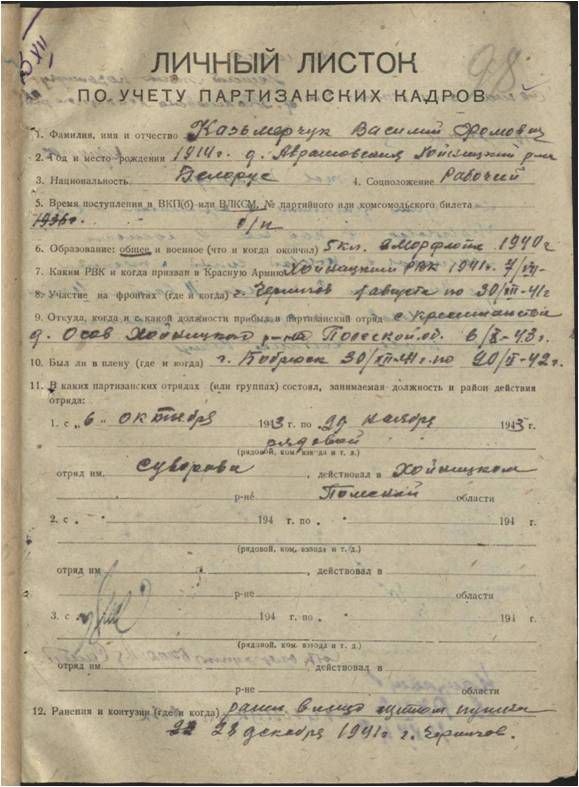 98
ЛИЧНЫЙ ЛИСТОК
ПО УЧЕТУ ПАРТИЗАНСКИХ КАДРОВ
1. Фамилия, имя и отчество Казьмерчук Василий Фомович
2. Год и место рождения 1914г. д. Хойникский р-на
3. Национальность Белорус 4. Соцположение Рабочий
5. Время поступления в ВКП(б) или ВЛКСМ, № партийного или комсомольского билета
1936г. б/п
6. Образование: общее и военное (что и когда окончил) 5 кл. 1940г
7. Каким РВК и когда призван в Красную Армию Хойникским РВК 1941г. 7/VII-
8. Участие на фронтах (где и когда) г. Чернигов 1 августа по 30/XII-41г
9. Откуда, когда и с какой должности прибыл в партизанский отряд с крестьянства
д. Осов Хойникского р-на Полеской об. 6/X-43г.
10. Был ли в плену (где и когда) г. Бобруйск 30/XII-41г. по 20/II-42г.
11. В каких партизанских отрядах (или группах) состоял, занимаемая должность и район действия
отряда:
1. с „6„ октября 1943 г. по 29 ноября 1943г.
рядовой
(рядовой, ком. взвода и т. д.)
отряд им. Суворова, действовал в Хойникском
р-не Полеской области
2. с „ 194 г. по „ 194 г.
(рядовой, ком. взвода и т. д.)
отряд им. , действовал в
р-не области
3. с „ 194 г. по „ 194 г.
(рядовой, ком. взвода и т. д.)
отряд им. действовал в
р-не области
12. Ранения и контузии (где и когда) ранен в лицо
28 декабря 1941г г. Чернигов.